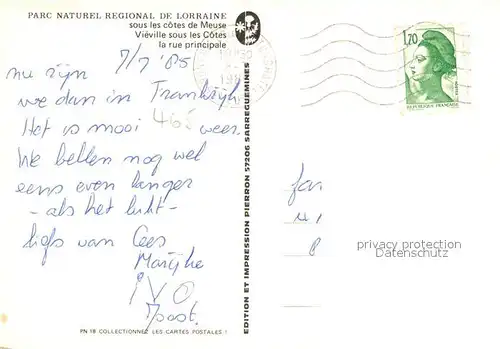 PARC NATUREL REGIONAL DE LORRAINE
sous les côtes de Meuse
Viéville sous les Côtes
la rue principale
7/7 '85
nu zijn
we dan in Frankrijk
Het is mooi weer.
465
We bellen nog wel
eens even langer
- als het lukt -
liefs van Cees
Marijke
IVO
Joost.
PN 18 COLLECTIONNEZ LES CARTES POSTALES !
EDITION ET IMPRESSION PIERRON 57206 SARREGUEMINES
1,70
REPUBLIQUE FRANÇAISE
privacy protection
Datenschutz